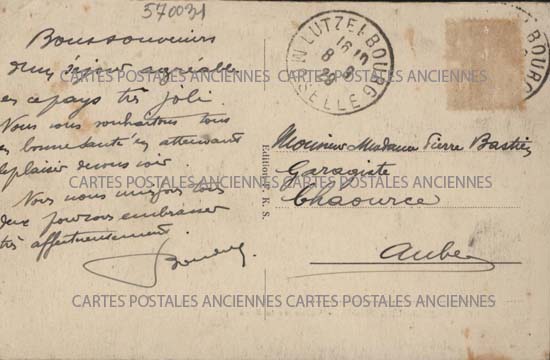 570031
Bons souvenirs
d'un séjour agréable
en ce pays très joli.
Nous vous souhaitons tous
en bonne santé en attendant
le plaisir de vous voir.
Nous vous tous
deux pour vous embrasser
très affectueusement.
LUTZELBOURG
MOSELLE
16 10
8 8
29
Edition K. S.
Monsieur Madame Pierre Bastien
Garagiste
Chaource
Aube
CARTES POSTALES ANCIENNES
CARTES POSTALES ANCIENNES
CARTES POSTALES ANCIENNES
CARTES POSTALES ANCIENNES
CARTES POSTALES ANCIENNES
CARTES POSTALES ANCIENNES